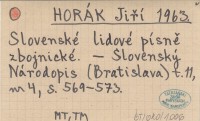 HORÁK Jiří 1963.
Slovenské lidové písně
zbojnické. – Slovenský
Národopis (Bratislava) t. 11,
nr 4, s. 569-573.
MT, TM